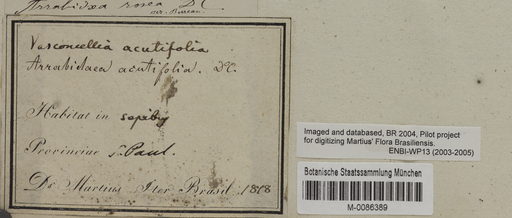 Arrabidaea rosea DC
det. Bureau.
Vasconcellia acutifolia
Arrabidaea acutifolia. DC.
Habitat in sepibus
Provinciae S. Paul.
Dr. Martius Iter Brasil. 1818
Imaged and databased, BR 2004, Pilot project
for digitizing Martius' Flora Brasiliensis.
ENBI-WP13 (2003-2005)
Botanische Staatssammlung München
M-0086389